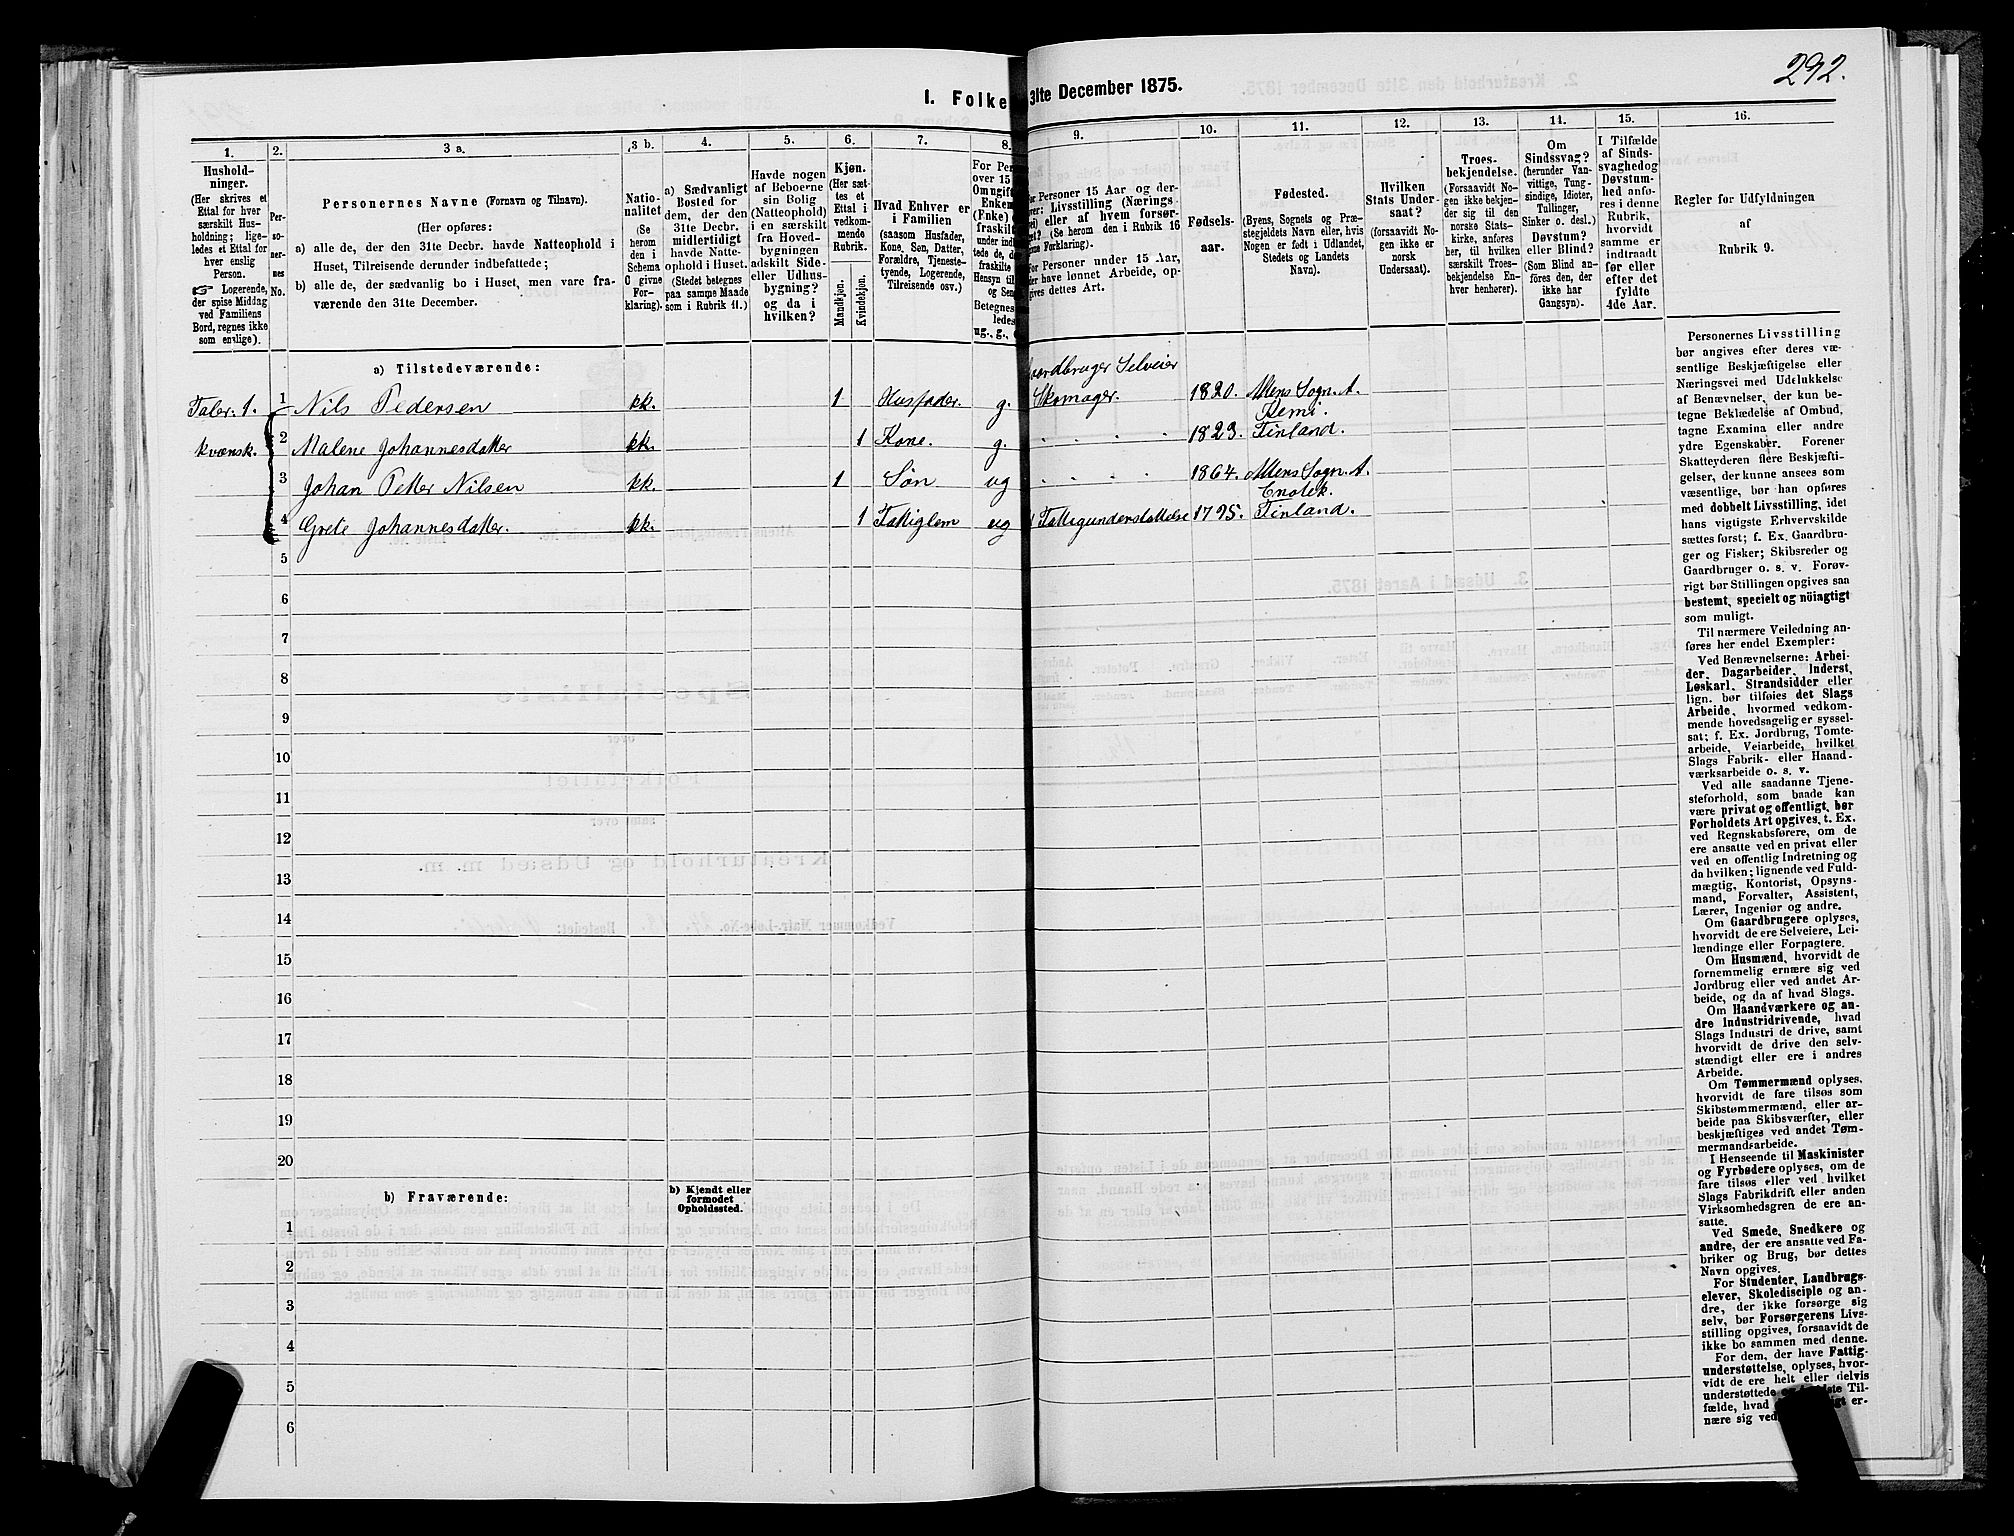 292.
I. Folke
31te December 1875.
1.
Hushold-
ninger.
(Her skrives et
Ettal for hver
særskilt Hus-
holdning; lige-
ledes et Ettal for
hver enslig
Person.
☞ Logerende,
der spise Middag
ved Familiens
Bord, regnes ikke
som enslige).
2.
Per-
so-
ner-
nes
No.
3 a.
Personernes Navne (Fornavn og Tilnavn).
(Her opføres:
a) alle de, der den 31te Decbr. havde Natteophold i
Huset, Tilreisende derunder indbefattede;
b) alle de, der sædvanlig bo i Huset, men vare fra-
værende den 31te December.
3 b.
Natio-
nalitet
(Se
herom
den i
Schema
O givne
For-
klaring).
4.
a) Sædvanligt
Bosted for
dem, der den
31te Decbr.
midlertidigt
havde Natte-
ophold i Huset.
(Stedet betegnes
paa samme Maade
som i Rubrik 11.)
5.
Havde nogen
af Beboerne
sin Bolig
(Natteophold)
i en særskilt
fra Hoved-
bygningen
adskilt Side-
eller Udhus-
bygning?
og da i
hvilken?
6.
Kjøn.
(Her sæt-
tes et
Ettal i
vedkom-
mende
Rubrik.
Mandkjøn.
Kvindekjøn.
7.
Hvad Enhver er
i Familien
(saasom Husfader,
Kone, Søn, Datter,
Forældre, Tjeneste-
tyende, Logerende,
Tilreisende osv.)
8.
For Per
over 15
Om ugift
Enkem
(Fnke)
fraskilt
under indbe
tede de, d
fraskilte
Hensyn til
og Sen
Betegnes
ledes
ug., g.,
9.
For Personer 15 Aar og der-
over: Livsstilling (Nærings
vei) eller af hvem forsør-
get? (Se herom den i Rubrik 16
givne Forklaring).
For Personer under 15 Aar,
der have lønnet Arbeide, op-
gives dettes Art.
10.
Fødsels-
aar.
11.
Fødested.
(Byens, Sognets og Præ-
stegjeldets Navn eller, hvis
Nogen er født i Udlandet,
Stedets og Landets
Navn).
12.
Hvilken
Stats Under-
saat?
(forsaavidt No-
gen ikke er
norsk
Undersaat).
13.
Troes-
bekjendelse.
(Forsaavidt No-
gen ikke bekjen-
der sig til den
norske Stats-
kirke, anføres
her, til hvilken
særskilt Troes-
bekjendelse En-
hver henhører).
14.
Om
Sindssvag?
(herunder Van-
vittige, Tung-
sindige, Idioter,
Tullinger,
Sinker o. desl.)
Døvstum?
eller Blind?
(Som Blind an-
føres den, der
ikke har
Gangsyn).
15.
I Tilfælde
af Sinds-
svaghed og
Døvstum-
hed anfø-
res i denne
Rubrik,
hvorvidt
samme er
indtraadt
før eller
efter det
fyldte
4de Aar.
16.
Regler for Udfyldningen
af
Rubrik 9.
a) Tilstedeværende:
Taler. 1.
kvænsk.
Gaardbruger Selveier
1 Nils Pedersen kk. 1 Husfader. g. Skomager. 1820. Altens Sogn. A.
Kemi.
2 Malene Johannesdatter kk. 1 Kone. g. . . . . 1823. Finland.
3 Johan Petter Nilsen kk. 1 Søn ug . . . . 1864. Altens Sogn. A.
Enotek.
4 Grete Johannesdatter. kk. 1 Fattiglem ug Fattigunderstøttelse 1795. Finland.
5
6
7
8
9
10
11
12
13
14
15
16
17
18
19
20
b) Fraværende:
b) Kjendt eller
formodet
Opholdssted.
1
2
3
4
5
6
Personernes Livsstilling
bør angives efter deres væ-
sentlige Beskjæftigelse eller
Næringsvei med Udelukkelse
af Benævnelser, der kun be-
tegne Beklædelse af Ombud,
tagne Examina eller andre
ydre Egenskaber. Forener
Skatteyderen flere Beskjæfti-
gelser, der kunne ansees som
væsentlige, bør han opføres
med dobbelt Livsstilling, idet
hans vigtigste Erhvervskilde
sættes først; f. Ex. Gaardbru-
ger og Fisker; Skibsreder og
Gaardbruger o. s. v. Forøv-
rigt bør Stillingen opgives saa
bestemt, specielt og nöiagtigt
som muligt.
Til nærmere Veiledning an-
føres her endel Exempler:
Ved Benævnelserne: Arbei-
der, Dagarbeider, Inderst,
Løskarl, Strandsidder eller
lign. bør tilføies det Slags
Arbeide, hvormed vedkom-
mende hovedsagelig er syssel-
sat; f. Ex. Jordbrug, Tomte-
arbeide, Veiarbeide, hvilket
Slags Fabrik- eller Haand-
værksarbeide o. s. v.
Ved alle saadanne Tjene-
steforhold, som baade kan
være privat og offentligt, bør
Forholdets Art opgives, t. Ex.
ved Regnskabsførere, om de
ere ansatte ved en privat eller
ved en offentlig Indretning og
da hvilken; lignende ved Fuld-
mægtig, Kontorist, Opsyns-
mand, Forvalter, Assistent,
Lærer, Ingeniør og andre.
Om Gaardbrugere oplyses,
hvorvidt de ere Selveiere, Lei-
lændinge eller Forpagtere.
Om Husmænd, hvorvidt de
fornemmelig ernære sig ved
Jordbrug eller ved andet Ar-
beide, og da af hvad Slags.
Om Haandværkere og an-
dre Industridrivende, hvad
Slags Industri de drive, samt
hvorvidt de drive den selv-
stændigt eller ere i andres
Arbeide.
Om Tømmermænd oplyses,
hvorvidt de fare tilsøs som
Skibstømmermænd, eller ar-
beide paa Skibsværfter, eller
beskjæftiges ved andet Tøm-
mermandsarbeide.
I Henseende til Maskinister
og Fyrbødere oplyses, om de
fare tilsøs eller ved hvilket
Slags Fabrikdrift eller anden
Virksomhedsgren de ere an-
satte.
Ved Smede, Snedkere og
andre, der ere ansatte ved Fa-
briker og Brug, bør dettes
Navn opgives.
For Studenter, Landbrugs-
elever, Skoledisciple og an-
dre, der ikke forsørge sig
selv, bør Forsørgerens Livs-
stilling opgives, forsaavidt de
ikke bo sammen med denne.
For dem, der have Fattig-
understøttelse, oplyses, hvor-
vidt de ere helt eller delvis
understøttede og Til-
fælde, hvad er-
nære sig ved